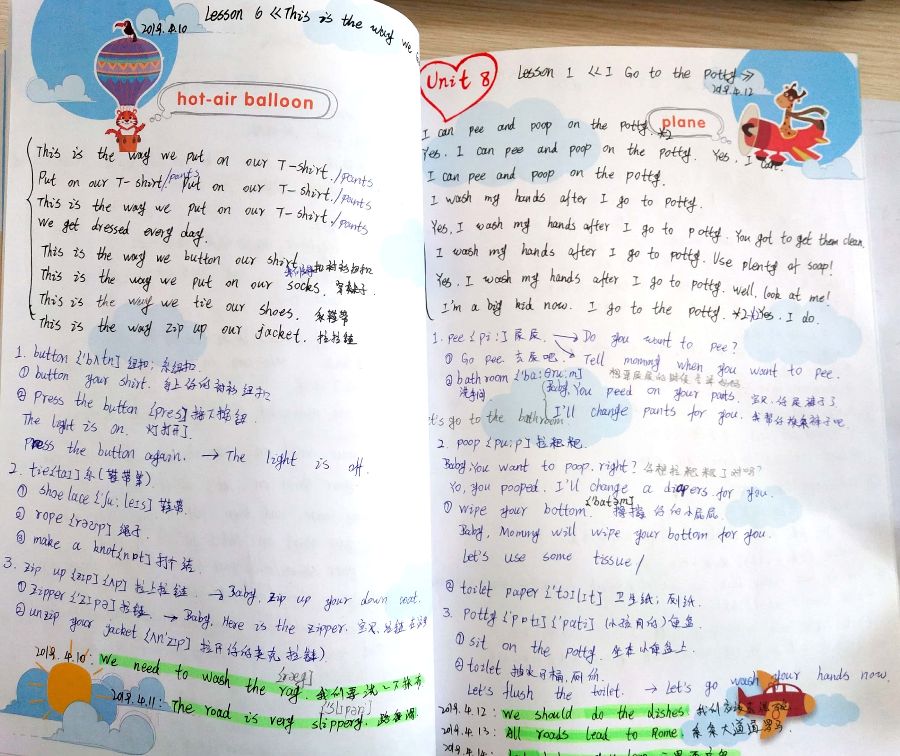 Lesson 6 《This is the way we
2019.4.10
hot-air balloon
This is the way we put on our T-shirt./pants
Put on our T-shirt/pants Put on our T-shirt./pants
This is the way we put on our T-shirt./pants
We get dressed every day.
This is the way we button our shirt.
This is the way we put on our socks. 穿袜子
This is the way we tie our shoes. 系鞋带
This is the way zip up our jacket. 拉拉链
1. button ['bʌtn] 纽扣; 系纽扣
① button your shirt. 扣上你的衬衫纽扣
② Press the button [pres] 按下按钮
The light is on. 灯打开了.
Press the button again. → The light is off.
2. tie[taɪ] 系(鞋带等)
① shoe lace ['ʃu: leɪs] 鞋带.
② rope [rəʊp] 绳子.
③ make a knot[nɒt] 打个结.
3. zip up [zɪp] [ʌp] 拉上拉链. → Baby, zip up your down coat.
① zipper ['zɪpə] 拉链. → Baby, Here is the zipper. 宝贝, 拉链在这里
② unzip your jacket [ʌn'zɪp] 拉开你的夹克拉链)
2019.4.10: We need to wash the rag. 我们要洗一下抹布
[ræg]
2019.4.11: The road is very slippery. 路很滑.
['slɪpərɪ]
Unit 8
Lesson 1 《I Go to the Potty》
2019.4.12
plane
I can pee and poop on the potty. *2
Yes, I can pee and poop on the potty. Yes, I can.
I can pee and poop on the potty.
I wash my hands after I go to potty.
Yes, I wash my hands after I go to potty. You got to get them clean.
I wash my hands after I go to potty. Use plenty of soap!
Yes, I wash my hands after I go to potty. Well, look at me!
I'm a big kid now. I go to the potty. *2 Yes, I do.
1. pee [pi:] 尿尿. → Do you want to pee?
① Go pee. 去尿吧. Tell mommy when you want to pee.
② bathroom ['bɑ:θru:m] 想要尿尿的时候告诉妈妈
洗手间 Baby, You peed on your pants. 宝贝, 你尿裤子了
Let's go to the bathroom. I'll change pants for you. 我帮你换条裤子吧.
2. poop [pu:p] 拉粑粑.
Baby, You want to poop, right? 你想拉粑粑了对吗?
Yo, you pooped. I'll change a diapers for you.
['bɒtəm]
① wipe your bottom. 擦擦你的小屁屁.
Baby, Mommy will wipe your bottom for you.
Let's use some tissue/
② toilet paper ['tɔɪlɪt] 卫生纸; 厕纸.
3. Potty ['pɒtɪ] ['pɑti] (小孩用的)便盆.
① sit on the potty. 坐在小便盆上.
② toilet 抽水马桶, 厕所.
Let's flush the toilet. → Let's go wash your hands now.
2019.4.12: We should do the dishes.
2019.4.13: All roads lead to Rome. 条条大道通罗马
2019.4.14: